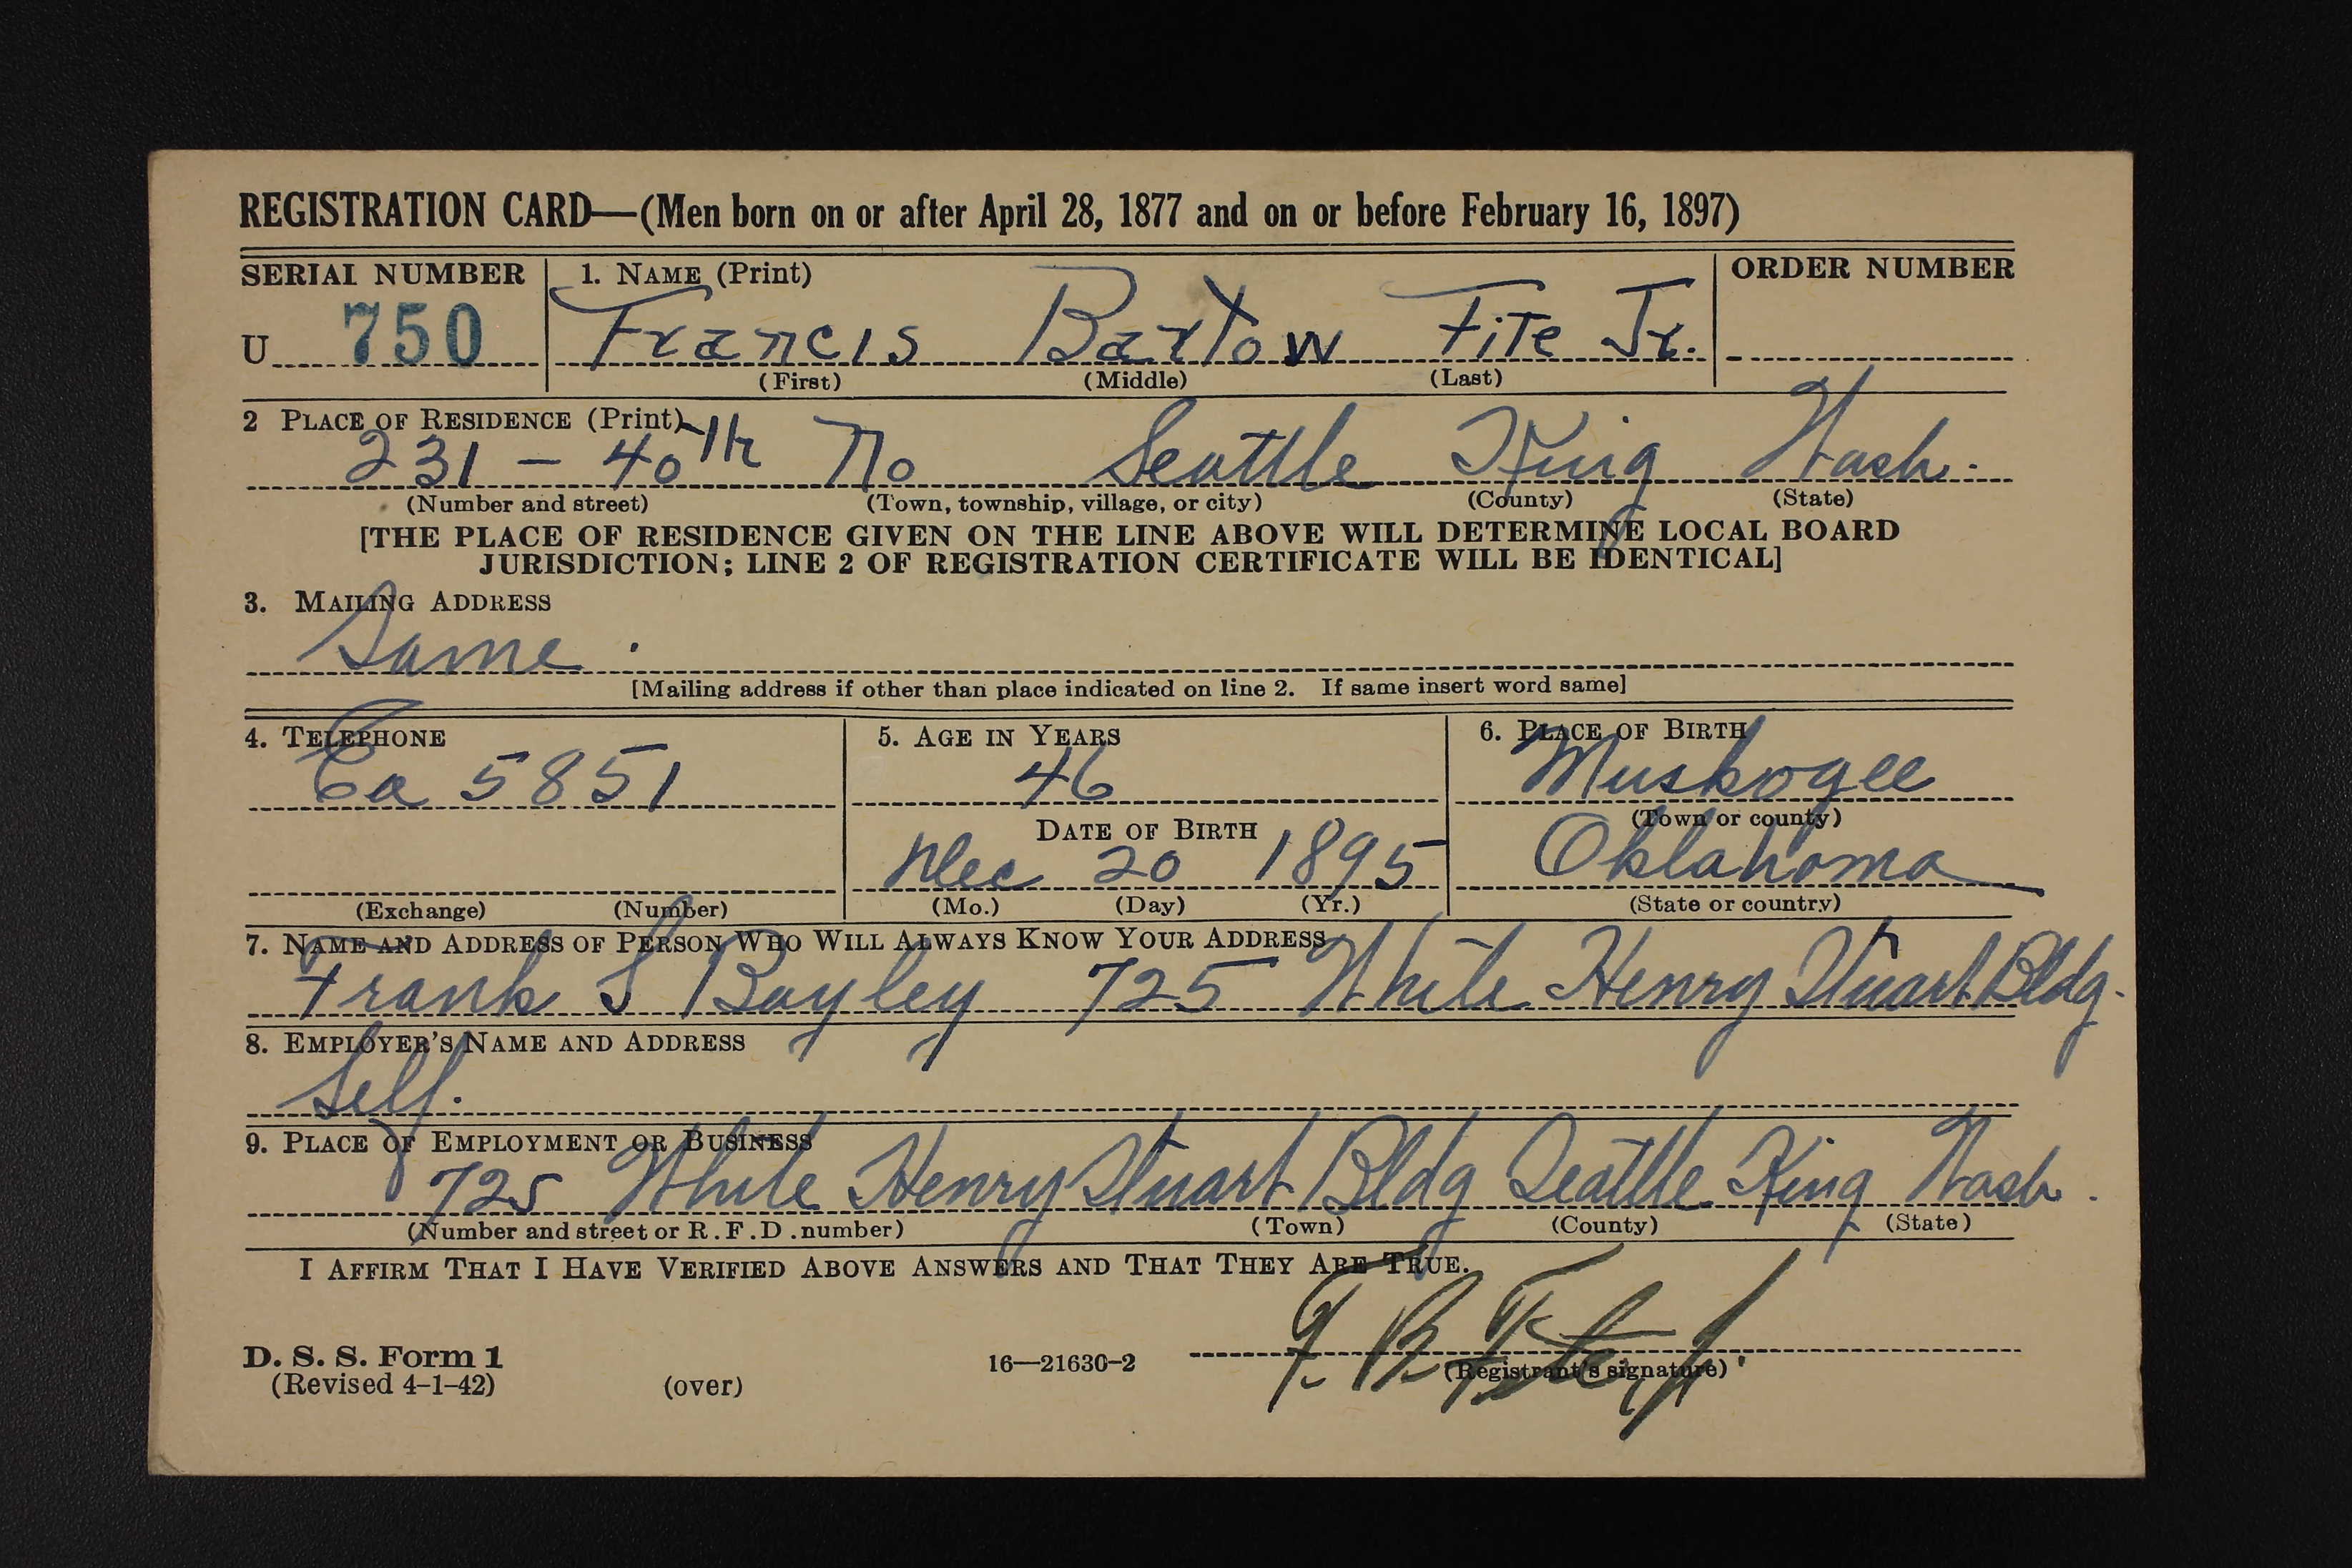 REGISTRATION CARD—(Men born on or after April 28, 1877 and on or before February 16, 1897)
SERIAL NUMBER
1. NAME (Print)
ORDER NUMBER
U 750
Francis Bartow Fite Jr.
(First) (Middle) (Last)
2 PLACE OF RESIDENCE (Print)
231 - 40th No Seattle King Wash.
(Number and street) (Town, township, village, or city) (County) (State)
[THE PLACE OF RESIDENCE GIVEN ON THE LINE ABOVE WILL DETERMINE LOCAL BOARD
JURISDICTION; LINE 2 OF REGISTRATION CERTIFICATE WILL BE IDENTICAL]
3. MAILING ADDRESS
Same.
[Mailing address if other than place indicated on line 2. If same insert word same]
4. TELEPHONE
Ea 5851
(Exchange) (Number)
5. AGE IN YEARS
46
DATE OF BIRTH
Dec 20 1895
(Mo.) (Day) (Yr.)
6. PLACE OF BIRTH
Muskogee
(Town or county)
Oklahoma
(State or country)
7. NAME AND ADDRESS OF PERSON WHO WILL ALWAYS KNOW YOUR ADDRESS
Frank S Bayley 725 White Henry Stuart Bldg.
8. EMPLOYER'S NAME AND ADDRESS
Self.
9. PLACE OF EMPLOYMENT OR BUSINESS
725 White Henry Stuart Bldg Seattle King Wash.
(Number and street or R.F.D. number) (Town) (County) (State)
I AFFIRM THAT I HAVE VERIFIED ABOVE ANSWERS AND THAT THEY ARE TRUE.
F. B. Fite, Jr.
D. S. S. Form 1
(Revised 4-1-42)
(over)
16—21630-2
(Registrant's signature)